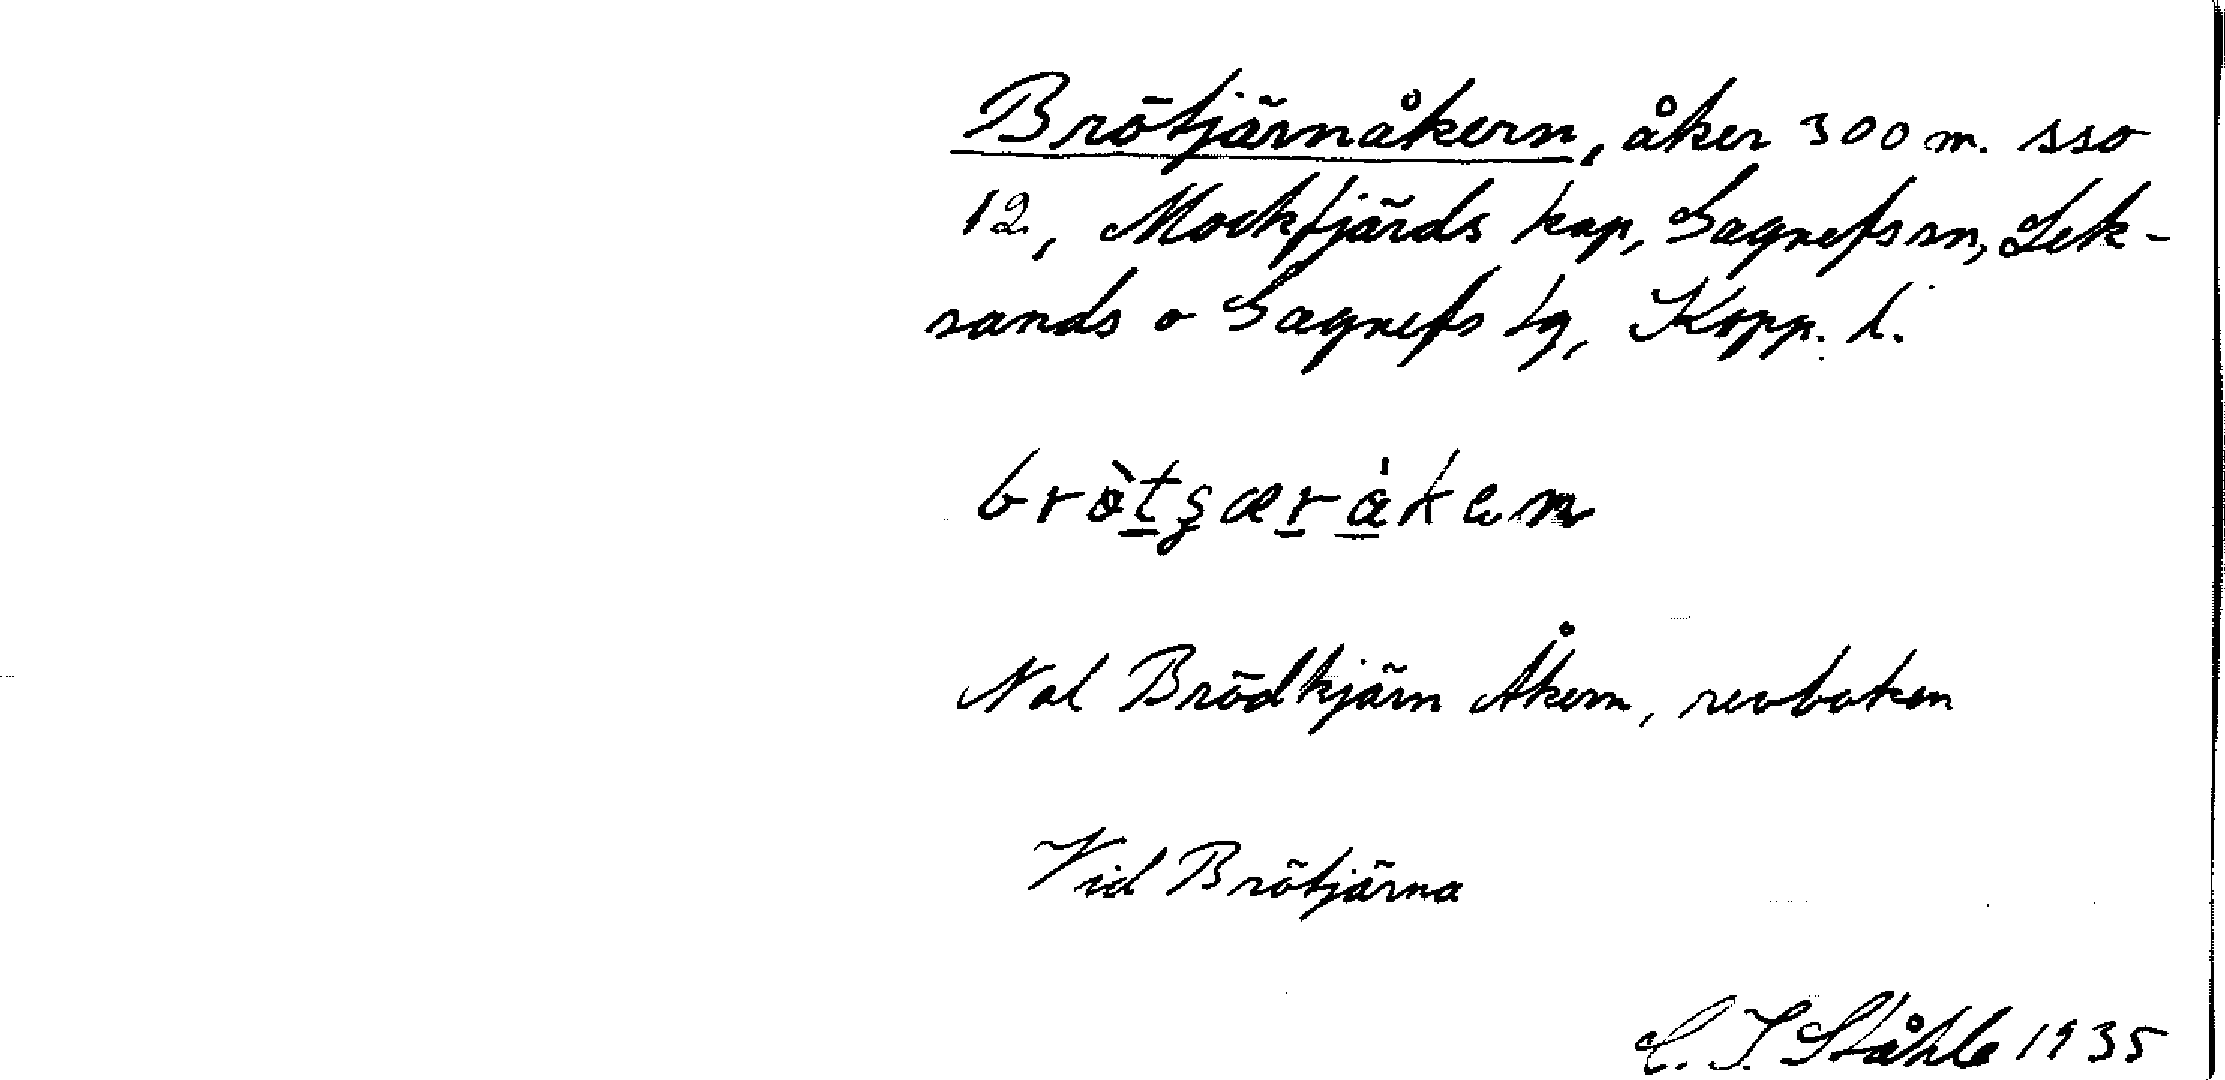 Brötjärnåkern, åker 300 m. sso
12, Mockfjärds kap, Gagnefs sn, Lek-
sands o Gagnefs tg, Kopp. l.
Nol Brödkjärn Åkern, revboken
Vid Brötjärna
C. I. Ståhle 1935